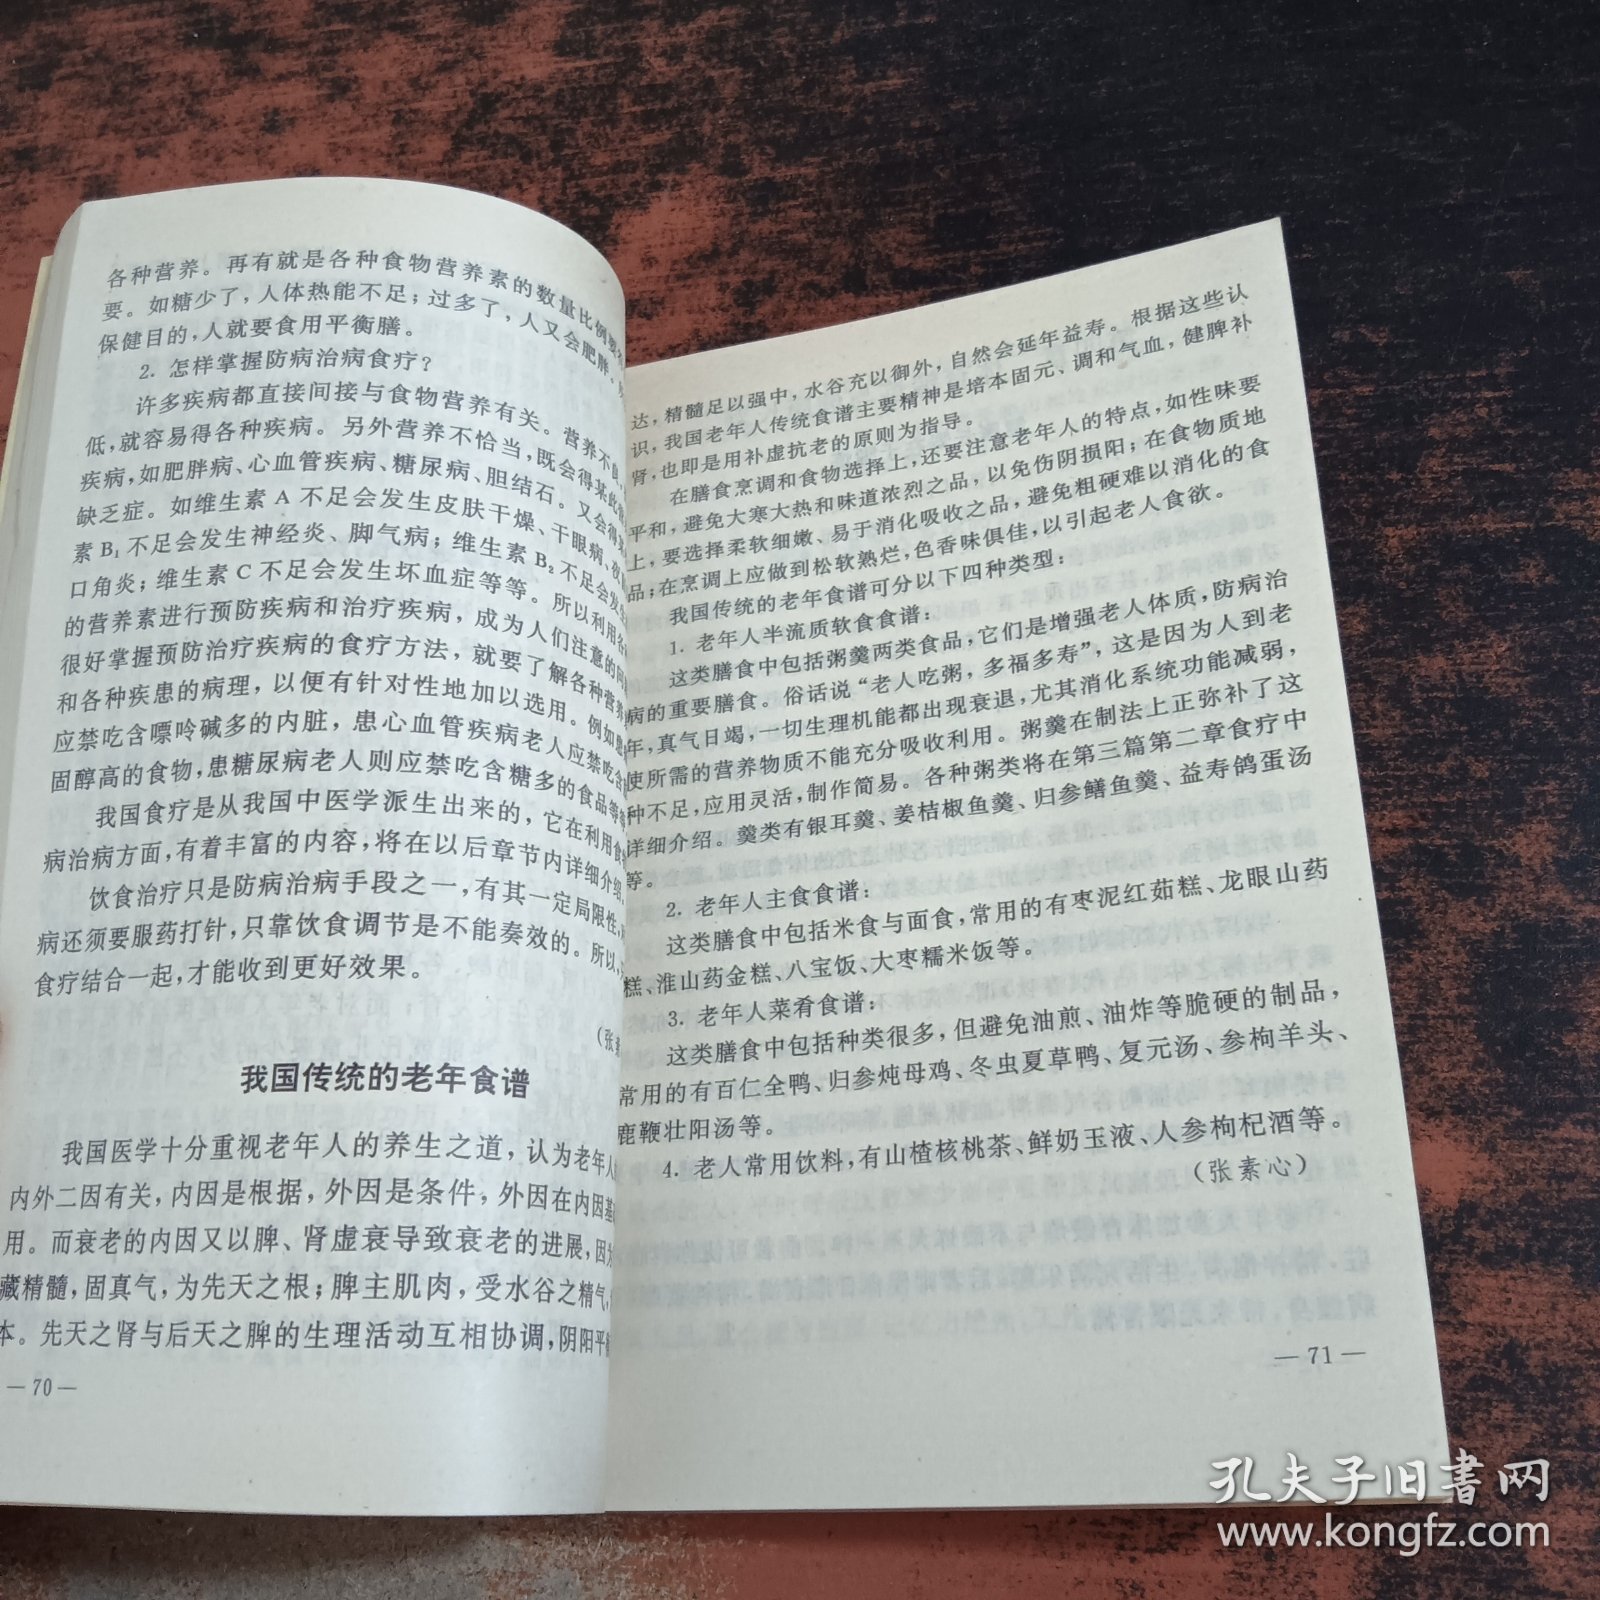 各种营养。再有就是各种食物营养素的数量比例要
要。如糖少了，人体热能不足；过多了，人又会肥胖。
保健目的，人就要食用平衡膳。
2. 怎样掌握防病治病食疗？
许多疾病都直接间接与食物营养有关。营养不
低，就容易得各种疾病。另外营养不恰当，既会得某此
疾病，如肥胖病、心血管疾病、糖尿病、胆结石。又会得
缺乏症。如维生素 A 不足会发生皮肤干燥、干眼病、夜
素 B₁ 不足会发生神经炎、脚气病；维生素 B₂ 不足会发
口角炎；维生素 C 不足会发生坏血症等等。所以利用各
的营养素进行预防疾病和治疗疾病，成为人们注意的问
很好掌握预防治疗疾病的食疗方法，就要了解各种营养
和各种疾患的病理，以便有针对性地加以选用。例如患
应禁吃含嘌呤碱多的内脏，患心血管疾病老人应禁吃含
固醇高的食物，患糖尿病老人则应禁吃含糖多的食品等等
我国食疗是从我国中医学派生出来的，它在利用食
病治病方面，有着丰富的内容，将在以后章节内详细介绍
饮食治疗只是防病治病手段之一，有其一定局限性，
病还须要服药打针，只靠饮食调节是不能奏效的。所以，
食疗结合一起，才能收到更好效果。
（张
我国传统的老年食谱
我国医学十分重视老年人的养生之道，认为老年人
内外二因有关，内因是根据，外因是条件，外因在内因基
用。而衰老的内因又以脾、肾虚衰导致衰老的进展，因
藏精髓，固真气，为先天之根；脾主肌肉，受水谷之精气，
本。先天之肾与后天之脾的生理活动互相协调，阴阳平
— 70 —
达，精髓足以强中，水谷充以御外，自然会延年益寿。根据这些认
识，我国老年人传统食谱主要精神是培本固元、调和气血，健脾补
肾，也即是用补虚抗老的原则为指导。
在膳食烹调和食物选择上，还要注意老年人的特点，如性味要
平和，避免大寒大热和味道浓烈之品，以免伤阴损阳；在食物质地
上，要选择柔软细嫩、易于消化吸收之品，避免粗硬难以消化的食
品；在烹调上应做到松软熟烂，色香味俱佳，以引起老人食欲。
我国传统的老年食谱可分以下四种类型：
1. 老年人半流质软食食谱：
这类膳食中包括粥羹两类食品，它们是增强老人体质，防病治
病的重要膳食。俗话说“老人吃粥，多福多寿”，这是因为人到老
年，真气日竭，一切生理机能都出现衰退，尤其消化系统功能减弱，
使所需的营养物质不能充分吸收利用。粥羹在制法上正弥补了这
种不足，应用灵活，制作简易。各种粥类将在第三篇第二章食疗中
详细介绍。羹类有银耳羹、姜桔椒鱼羹、归参鳝鱼羹、益寿鸽蛋汤
等。
2. 老年人主食食谱：
这类膳食中包括米食与面食，常用的有枣泥红茹糕、龙眼山药
糕、淮山药金糕、八宝饭、大枣糯米饭等。
3. 老年人菜肴食谱：
这类膳食中包括种类很多，但避免油煎、油炸等脆硬的制品，
常用的有百仁全鸭、归参炖母鸡、冬虫夏草鸭、复元汤、参枸羊头、
鹿鞭壮阳汤等。
4. 老人常用饮料，有山楂核桃茶、鲜奶玉液、人参枸杞酒等。
（张素心）
— 71 —
孔夫子旧书网
www.kongfz.com